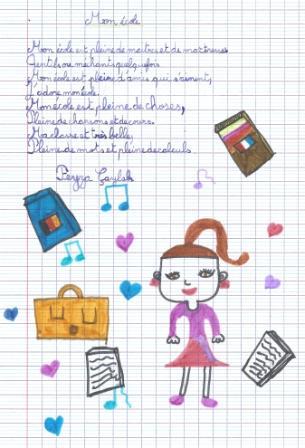 Mon école
Mon école est pleine de maitres et de maitresses
Gentils ou méchants quelquefois
Mon école est pleine d'amis qui s'aiment,
J'adore mon école.
Mon école est pleine de choses,
Pleine de chansons et de cours.
Ma classe est très belle,
Pleine de mots et pleine de calculs.